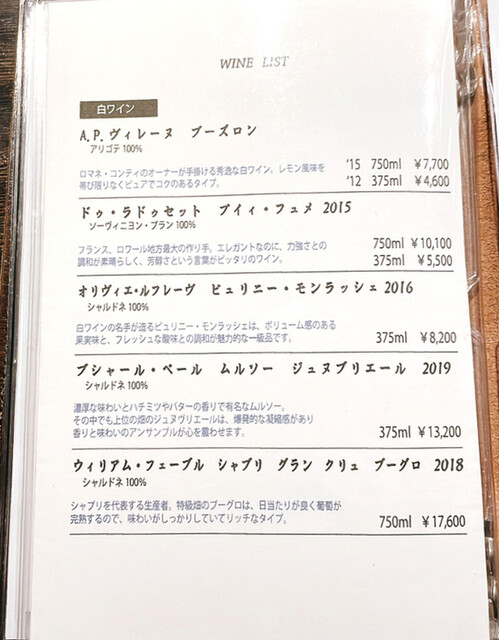 WINE LIST
白ワイン
A.P.ヴィレーヌ ブーズロン
アリゴテ 100%
ロマネ・コンティのオーナーが手掛ける秀逸な白ワイン。レモン風味を
帯び限りなくピュアでコクのあるタイプ。
'15 750ml ¥7,700
'12 375ml ¥4,600
ドゥ・ラドゥセット プイィ・フュメ 2015
ソーヴィニヨン・ブラン 100%
フランス、ロワール地方最大の作り手。エレガントなのに、力強さとの
調和が素晴らしく、芳醇さという言葉がピッタリのワイン。
750ml ¥10,100
375ml ¥5,500
オリヴィエ・ルフレーヴ ピュリニー・モンラッシェ 2016
シャルドネ 100%
白ワインの名手が造るピュリニー・モンラッシェは、ボリューム感のある
果実味と、フレッシュな酸味との調和が魅力的な一級品です。
375ml ¥8,200
ブシャール・ペール ムルソー ジュヌブリエール 2019
シャルドネ 100%
濃厚な味わいとハチミツやバターの香りで有名なムルソー。
その中でも上位の畑のジュヌヴリエールは、爆発的な凝縮感があり
香りと味わいのアンサンブルが心を震わせます。
375ml ¥13,200
ウィリアム・フェーブル シャブリ グラン クリュ ブーグロ 2018
シャルドネ 100%
シャブリを代表する生産者。特級畑のブーグロは、日当たりが良く葡萄が
完熟するので、味わいがしっかりしていてリッチなタイプ。
750ml ¥17,600